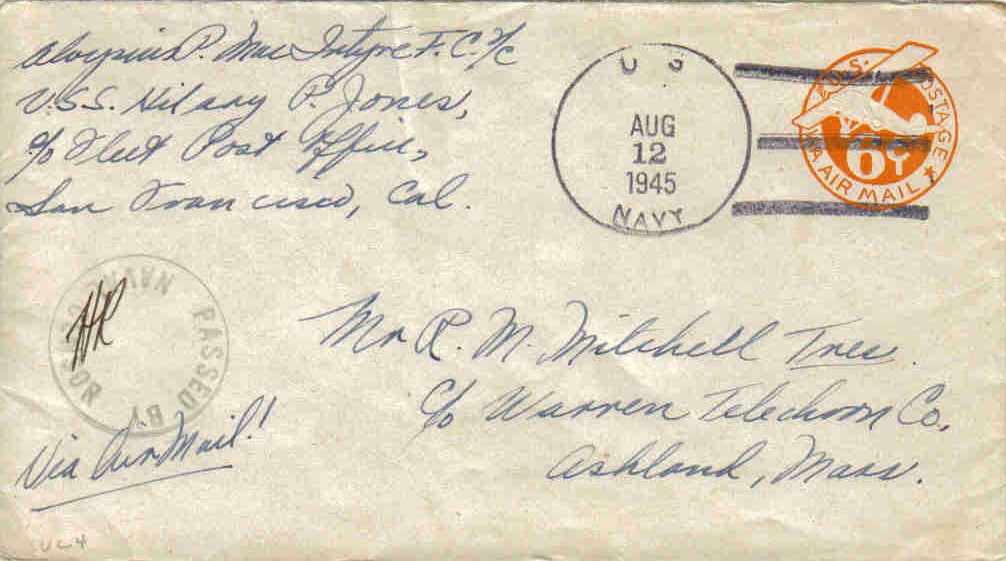 Aloysius P. Mac Intyre F.C. 2/c
U.S.S. Hilary P. Jones,
c/o Fleet Post Office,
San Francisco, Cal.
U S
AUG
12
1945
NAVY
U.S. POSTAGE
6¢
VIA AIR MAIL
PASSED BY
NAVAL CENSOR
HR
Mr R. M. Mitchell Tres.
c/o Warren Telechron Co.
Ashland, Mass.
Via Air Mail!
UC4